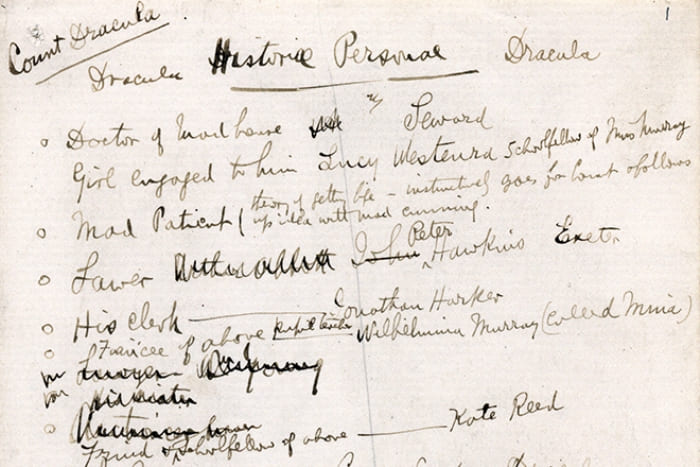 1
Count Dracula
Dracula Historiæ Personae Dracula
Doctor of Mad house Seward
Girl engaged to him Lucy Westenra schoolfellow of Miss Murray
Mad Patient (theory of getting life – instinctively goes for Count & follows
up idea with mad cunning.
Lawer John Peter Hawkins Exeter
His clerk — Jonathan Harker
Fiancee of above pupil teacher Wilhelmina Murray (called Mina)
Lawyer
Friend & schoolfellow of above — Kate Reed